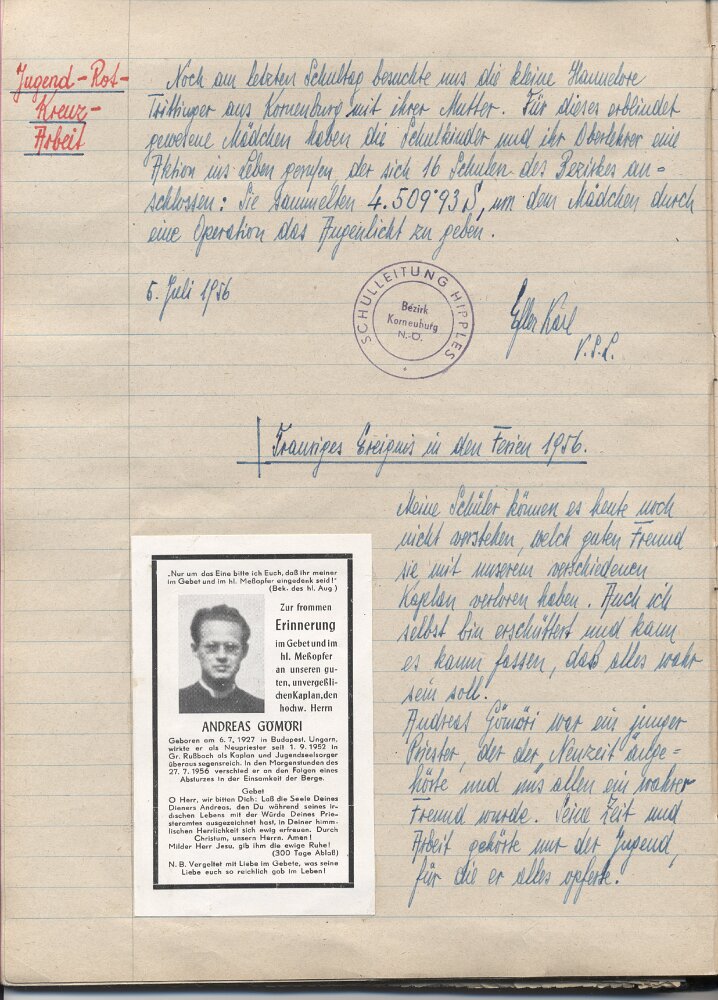 Jugend-Rot-
Kreuz-
Arbeit
Noch am letzten Schultag besuchte uns die kleine Hannelore
Trittinger aus Kornenburg mit ihrer Mutter. Für dieses erblindet
gewesene Mädchen haben die Schulkinder und ihr Oberlehrer eine
Aktion ins Leben gerufen, der sich 16 Schulen des Bezirkes an=
schlossen: Sie sammelten 4.509·93 S, um dem Mädchen durch
eine Operation das Augenlicht zu geben.
5. Juli 1956
SCHULLEITUNG HIPPLES
Bezirk
Korneuburg
N.-Ö.
Karl
V.S.L.
Trauriges Ereignis in den Ferien 1956.
Meine Schüler können es heute noch
nicht verstehen, welch guten Freund
sie mit unserem verschiedenen
Kaplan verloren haben. Auch ich
selbst bin erschüttert und kann
es kaum fassen, daß alles wahr
sein soll.
Andreas Gömöri war ein junger
Priester, der der „Neuzeit" ange=
hörte und uns allen ein wahrer
Freund wurde. Seine Zeit und
Arbeit gehörte nur der Jugend,
für die er alles opferte.
„Nur um das Eine bitte ich Euch, daß ihr meiner
im Gebet und im hl. Meßopfer eingedenk seid!"
(Bek. des hl. Aug.)
Zur frommen
Erinnerung
im Gebet und im
hl. Meßopfer
an unseren gu-
ten, unvergeßli-
chen Kaplan, den
hochw. Herrn
ANDREAS GÖMÖRI
Geboren am 6. 7. 1927 in Budapest, Ungarn,
wirkte er als Neupriester seit 1. 9. 1952 in
Gr. Rußbach als Kaplan und Jugendseelsorger
überaus segensreich. In den Morgenstunden des
27. 7. 1956 verschied er an den Folgen eines
Absturzes in der Einsamkeit der Berge.
Gebet
O Herr, wir bitten Dich: Laß die Seele Deines
Dieners Andreas, den Du während seines ir-
dischen Lebens mit der Würde Deines Prie-
steramtes ausgezeichnet hast, in Deiner himm-
lischen Herrlichkeit sich ewig erfreuen. Durch
Christum, unsern Herrn. Amen!
Milder Herr Jesu, gib ihm die ewige Ruhe!
(300 Tage Ablaß)
N. B. Vergeltet mit Liebe im Gebete, was seine
Liebe euch so reichlich gab im Leben!